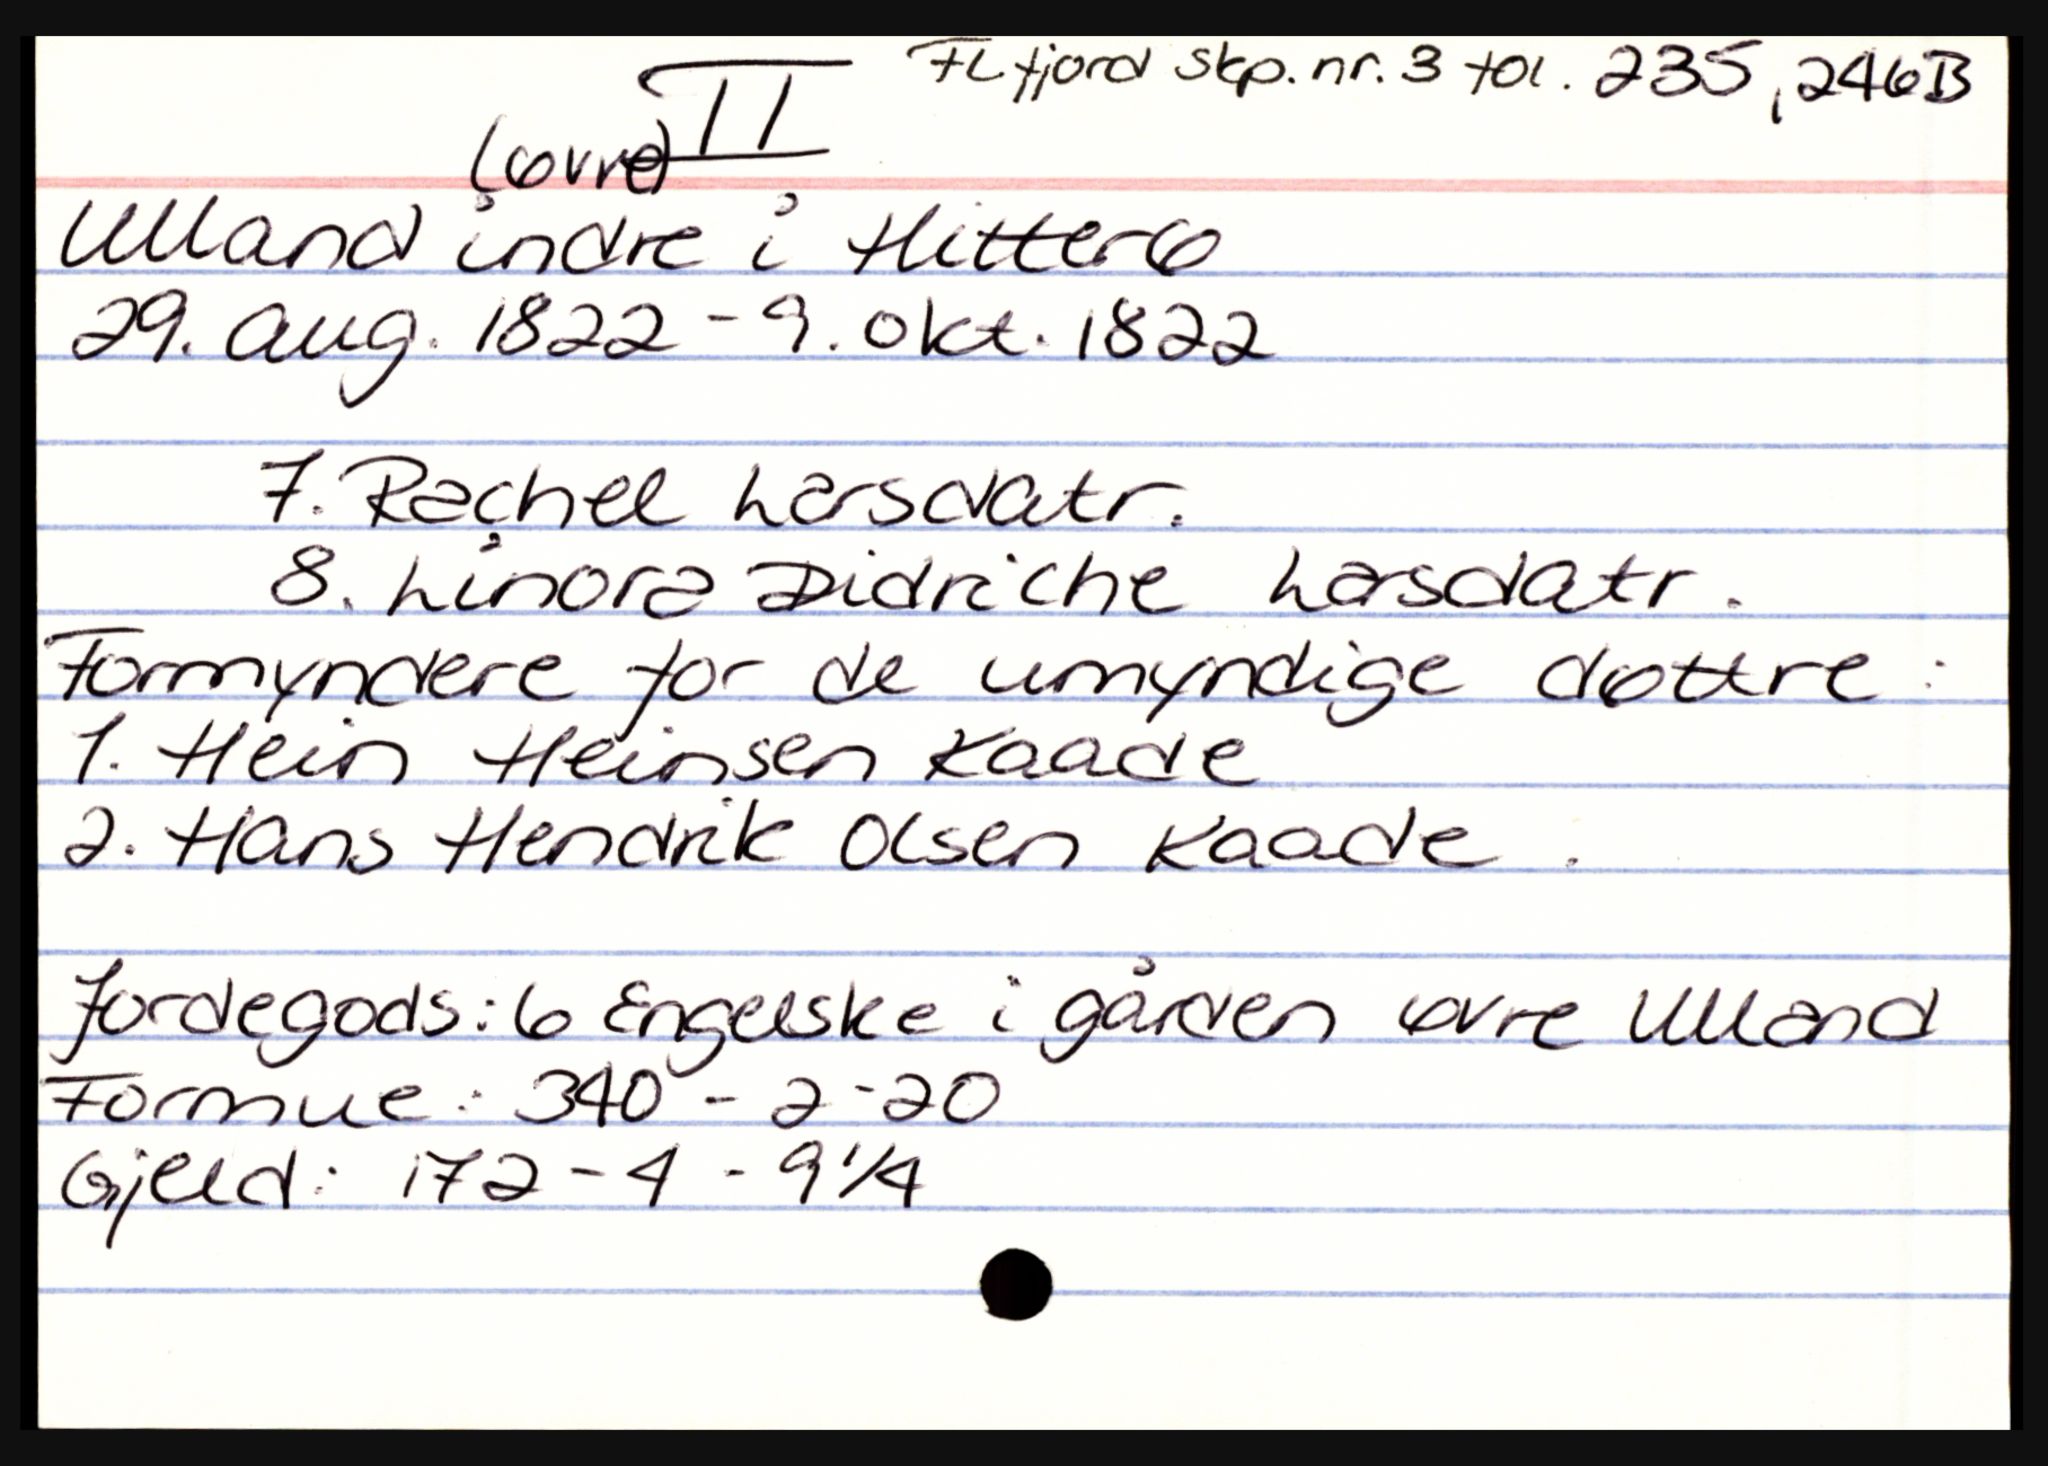 Flfjord skp. nr. 3 fol. 235, 246B
II
(øvre)
Ulland indre i Hitterø
29. aug. 1822 - 9. okt. 1822
7. Rachel Larsdatr.
8. Linora Didriche Larsdatr.
Formyndere for de umyndige døttre:
1. Hein Heinsen Kaade
2. Hans Hendrik Olsen Kaade.
Jordegods: 6 Engelske i gården øvre Ulland
Formue: 340 - 2 - 20
Gjeld: 172 - 4 - 9 1/4